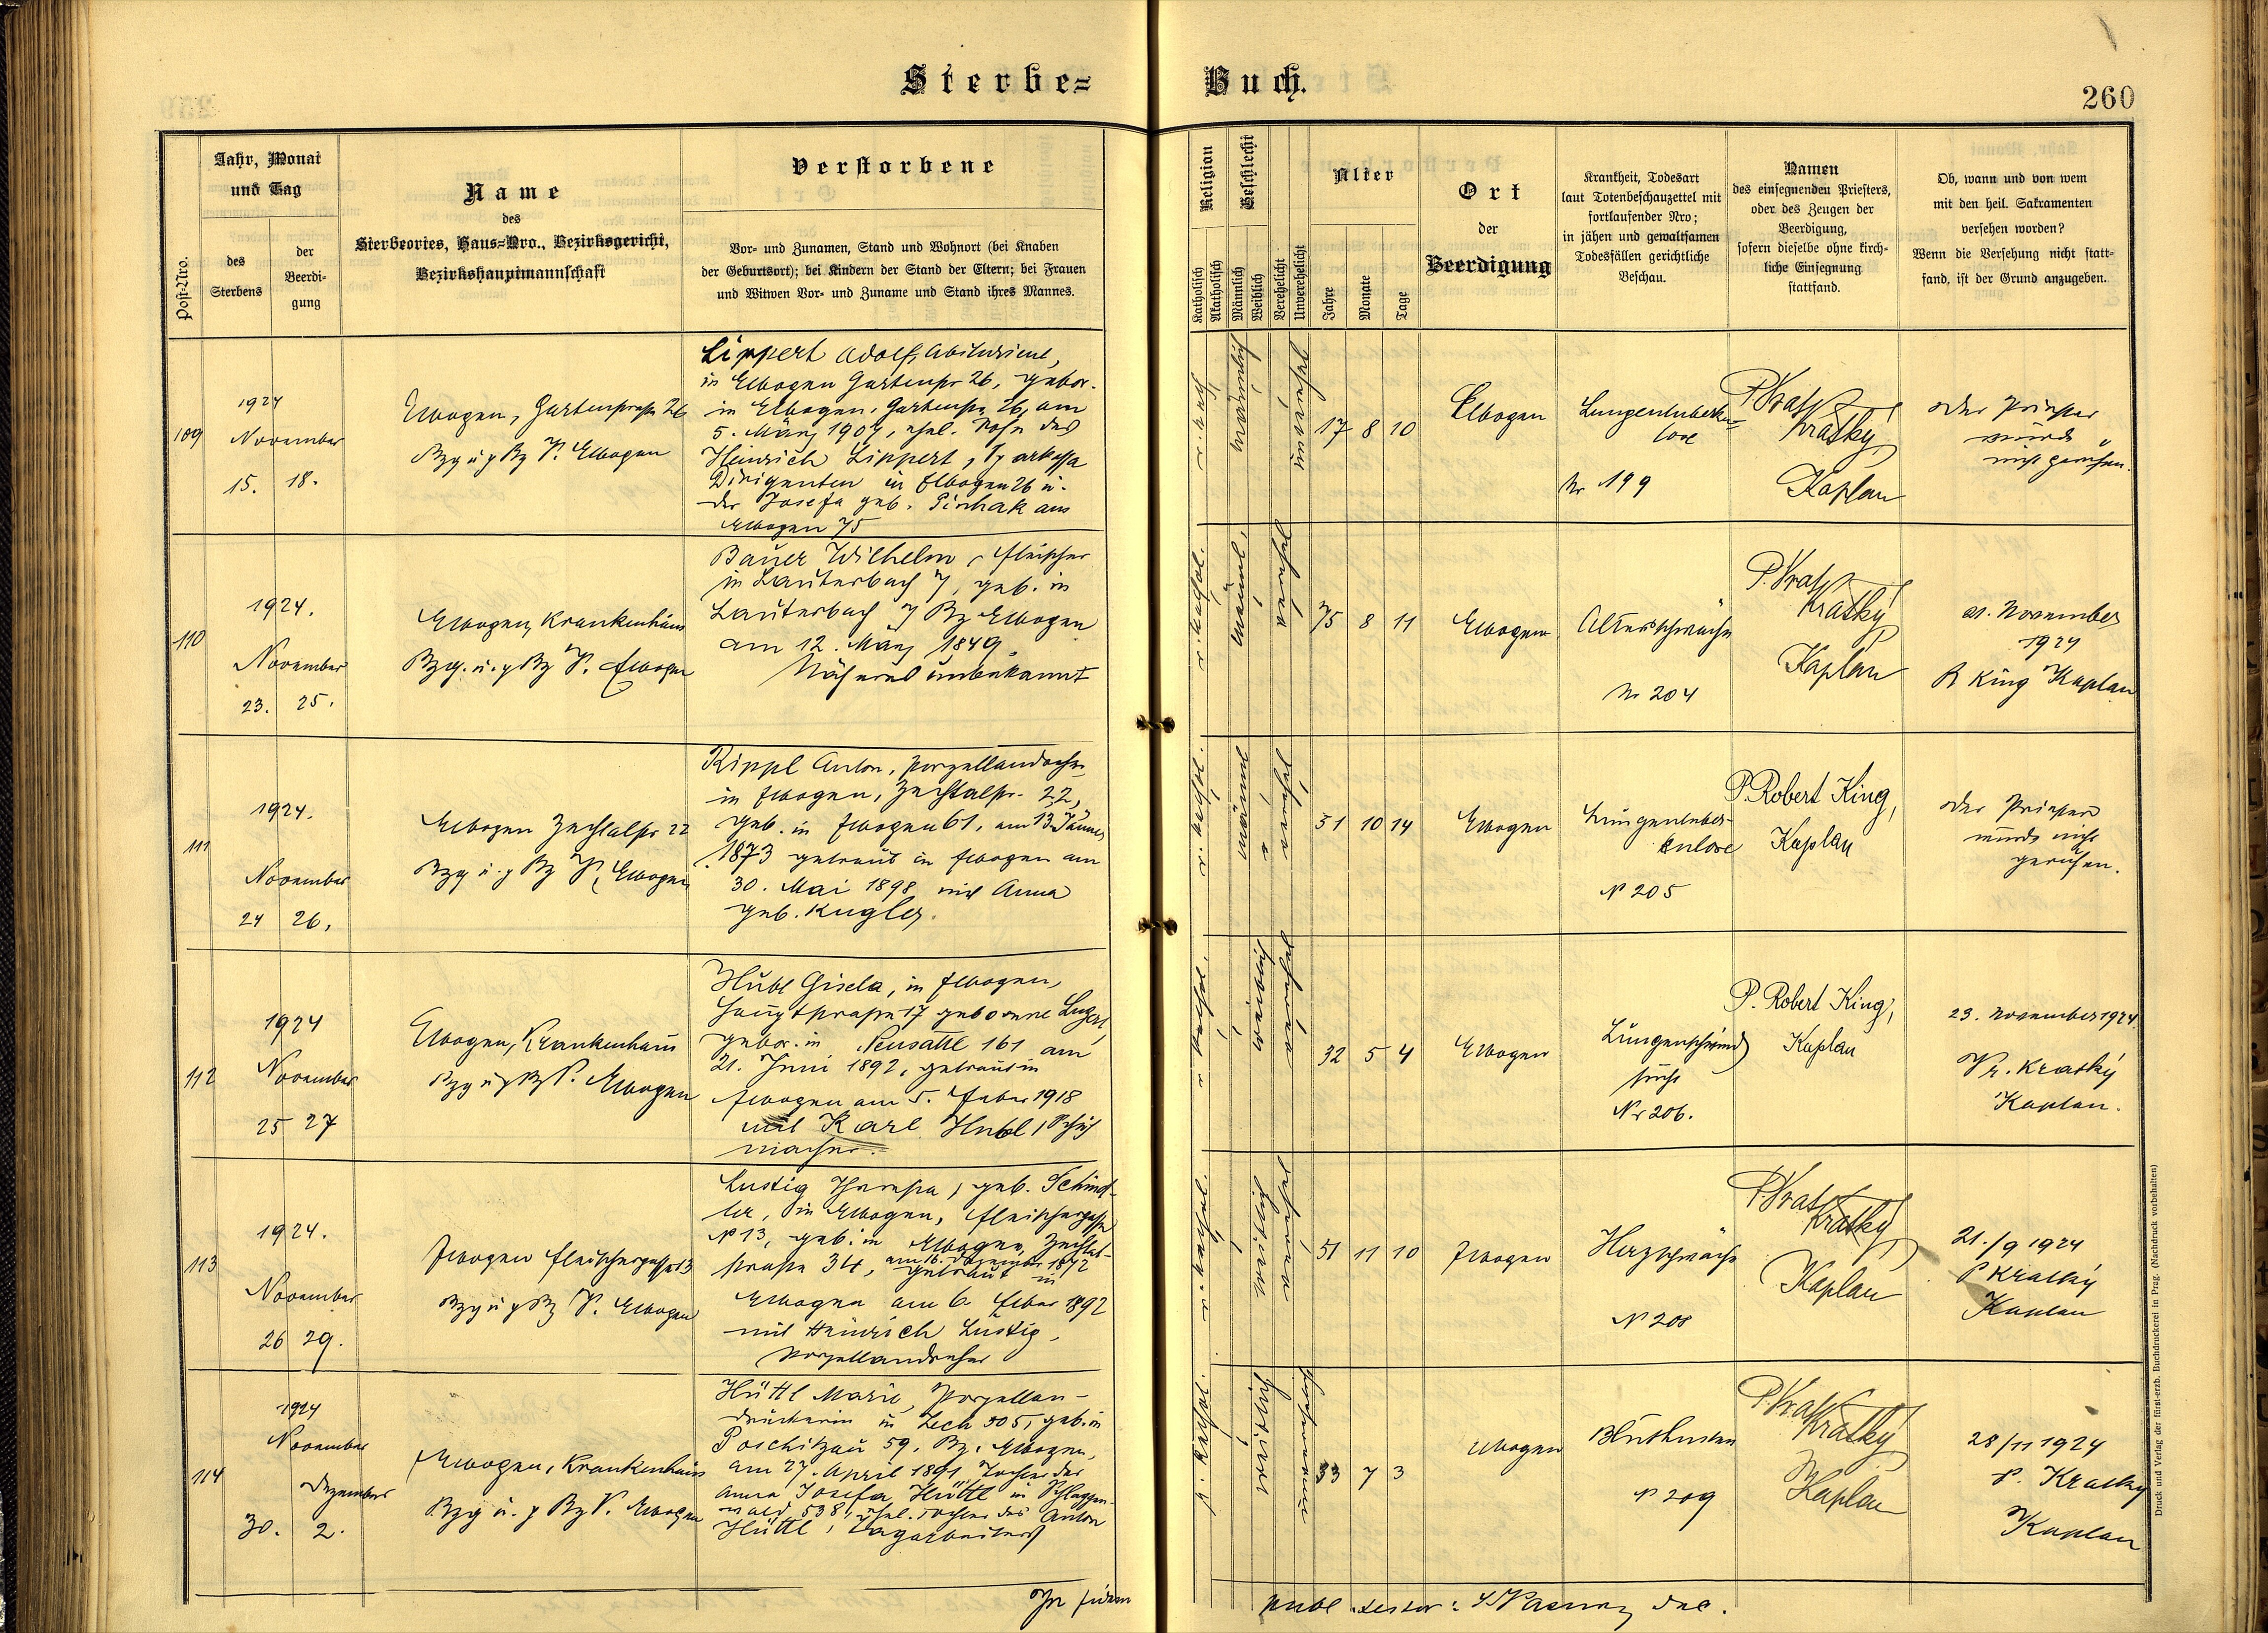 Sterbe=
Buch.
260
Post-Nro.
Jahr, Monat
und Tag
des
Sterbens
der
Beerdi-
gung
Name
des
Sterbeortes, Haus=Nro., Bezirksgericht,
Bezirkshauptmannschaft
Verstorbene
Vor- und Zunamen, Stand und Wohnort (bei Knaben
der Geburtsort); bei Kindern der Stand der Eltern; bei Frauen
und Witwen Vor- und Zuname und Stand ihres Mannes.
Religion
Katholisch
Akatholisch
Geschlecht
Männlich
Weiblich
Verehelicht
Unverehelicht
Alter
Jahre
Monate
Tage
Ort
der
Beerdigung
Krankheit, Todesart
laut Totenbeschauzettel mit
fortlaufender Nro;
in jähen und gewaltsamen
Todesfällen gerichtliche
Beschau.
Namen
des einsegnenden Priesters,
oder des Zeugen der
Beerdigung,
sofern dieselbe ohne kirch-
liche Einsegnung
stattfand.
Ob, wann und von wem
mit den heil. Sakramenten
versehen worden?
Wenn die Versehung nicht statt-
fand, ist der Grund anzugeben.
109
1924
November
15. 18.
Elbogen, Gartenstraße 26
Bzg u. Bz Elbogen
Lippert Adolf, Abiturient,
in Elbogen Gartenstr 26, gebor.
in Elbogen, Gartenstr. 26, am
5. März 1907, ehel. Sohn des
Heinrich Lippert, Sparkassa
Dirigenten in Elbogen 26 u.
der Josefa geb. Pischak aus
Elbogen 75
männlich
17 8 10
Elbogen
Lungentuberku=
lose
Nr 199
P. Vrat. Kratký
Kaplan
der Priester
wurde
nicht gerufen.
110
1924.
November
23. 25.
Elbogen, Krankenhaus
Bzg. u. Bz Elbogen
Bauer Wilhelm, Fleischer
in Lauterbach 7, geb. in
Lauterbach 7 Bz Elbogen
am 12. März 1849.
Näheres unbekannt
r. kathol.
männl.
verehel
75 8 11
Elbogen
Altersschwäche
Nr 204
P. Vrat. Kratký
Kaplan
21. November
1924
R King Kaplan
111
1924.
November
24 26.
Elbogen Zechtalstr 22
Bzg u. Bz Elbogen
Rippl Anton, Porzellandreher
in Elbogen, Zechtalstr. 22,
geb. in Elbogen 61, am 13. Jänner
1873 getraut in Elbogen am
30. Mai 1898 mit Anna
geb. Kugler.
r. kathol.
männl
verehel
51 10 14
Elbogen
Lungentuber-
kulose
N 205
P. Robert King,
Kaplan
der Priester
wurde nicht
gerufen.
112
1924
November
25 27
Elbogen, Krankenhaus
Bzg u Bz Elbogen
Hubl Gisela, in Elbogen,
Hauptstraße 17 geborene Lugert,
gebor. in Neusattl 161 am
21. Juni 1892, getraut in
Elbogen am 5. Feber 1918
mit Karl Hubl, Schuh
macher.
r kathol.
weiblich
verehel
32 5 4
Elbogen
Lungenschwind
sucht
Nr 206.
P. Robert King,
Kaplan
23. November 1924
Vr. Kratký
Kaplan.
113
1924.
November
26 29.
Elbogen Fleischergasse 13
Bzg u Bz Elbogen
Lustig Theresia, geb. Schind-
ler, in Elbogen, Fleischergasse
N 13, geb. in Elbogen, Zechtal-
straße 34, am 16. Dezember 1872 getraut in
Elbogen am 6. Feber 1892
mit Heinrich Lustig,
Porzellandreher
r. kathol.
weiblich
verehel
51 11 10
Elbogen
Herzschwäche
N 208
P. Vrat. Kratký
Kaplan
21./9 1924
P Kratký
Kaplan
114
1924
November
Dezember
30. 2.
Elbogen, Krankenhaus
Bzg u. Bz Elbogen
Hüttl Marie, Porzellan-
druckerin in Zech 305, geb. in
Poschitzau 59, Bz. Elbogen,
am 27. April 1891 Tochter der
Anna Josefa Hüttl in Schlaggen-
wald 538, ehel. Tochter des Anton
Hüttl, Tagarbeiters
r. kathol.
weiblich
33 7 3
Elbogen
Bluthusten
N 209
P. Vrat. Kratký
Kaplan
28/11 1924
P. Kratký
Kaplan
Druck und Verlag der fürst-erzb. Buchdruckerei in Prag. (Nachdruck vorbehalten)